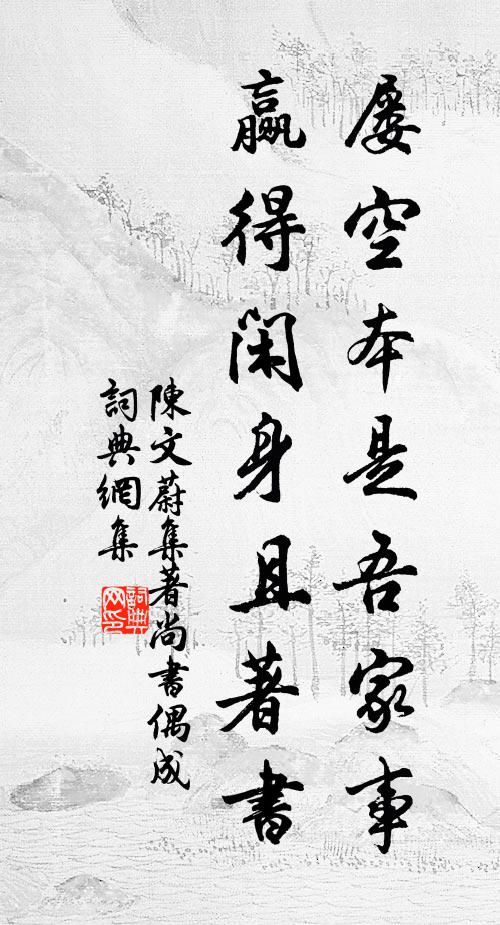 屢空本是吾家事
贏得閑身且著書
陳文蔚集著尚書偶成
詞典網集
詞典網印